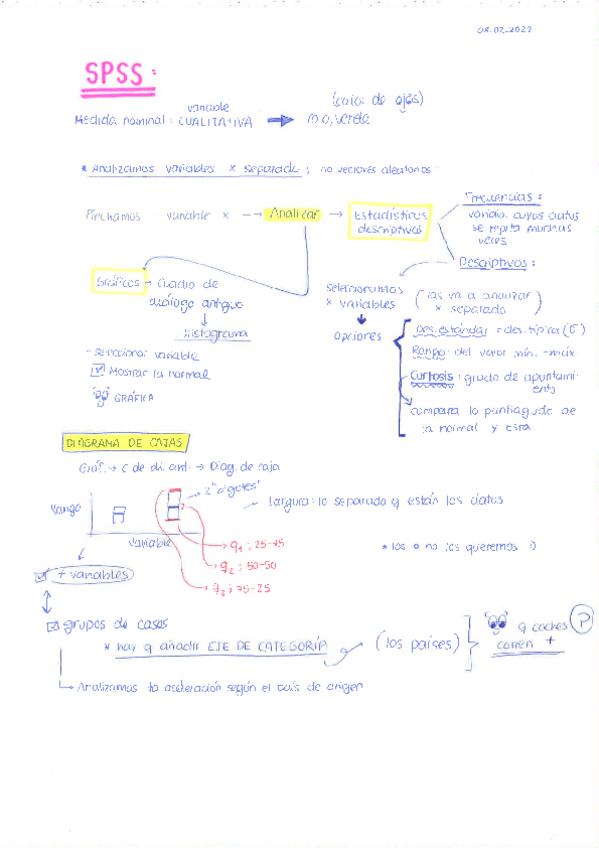 08.02.2022
SPSS:
variable (color de ojos)
Medida nominal: CUALITATIVA → rojo, verde
* Analizamos variables x separado; no vectores aleatorios
Pinchamos variable x → Analizar → Estadísticos descriptivos
Frecuencias:
variab. cuyos datos
se repita muchas
veces
Descriptivos:
Gráficos → Cuadro de
diálogo antiguo
↓
Histograma
- Seleccionar variable
☑ Mostrar la normal
GRÁFICA
seleccionamos
x variables
(las va a analizar
x separado)
↓
opciones
Des. estándar = des. típica (σ)
Rango: del valor mín. - máx
Curtosis: grado de apuntami-
ento
compara lo puntiagudo de
la normal y esta
DIAGRAMA DE CAJAS
Gráf. → C de di. ant. → Diag. de caja
2 "bigotes"
Largura: lo separado q están los datos
Rango
variable
q₁: 25-75
q₂: 50-50
q₃: 75-25
* los o no los queremos :)
☑ + variables
☑ grupos de casos
* hay q añadir EJE DE CATEGORÍA (los países)
q coches
corren +
?
Analizamos la aceleración según el país de origen